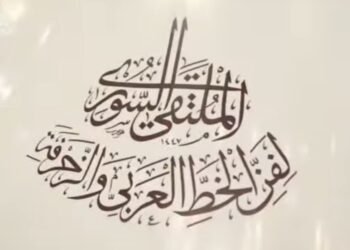 الملتقى السوري
١٤٤٧
لفن الخط العربي والزخرفة